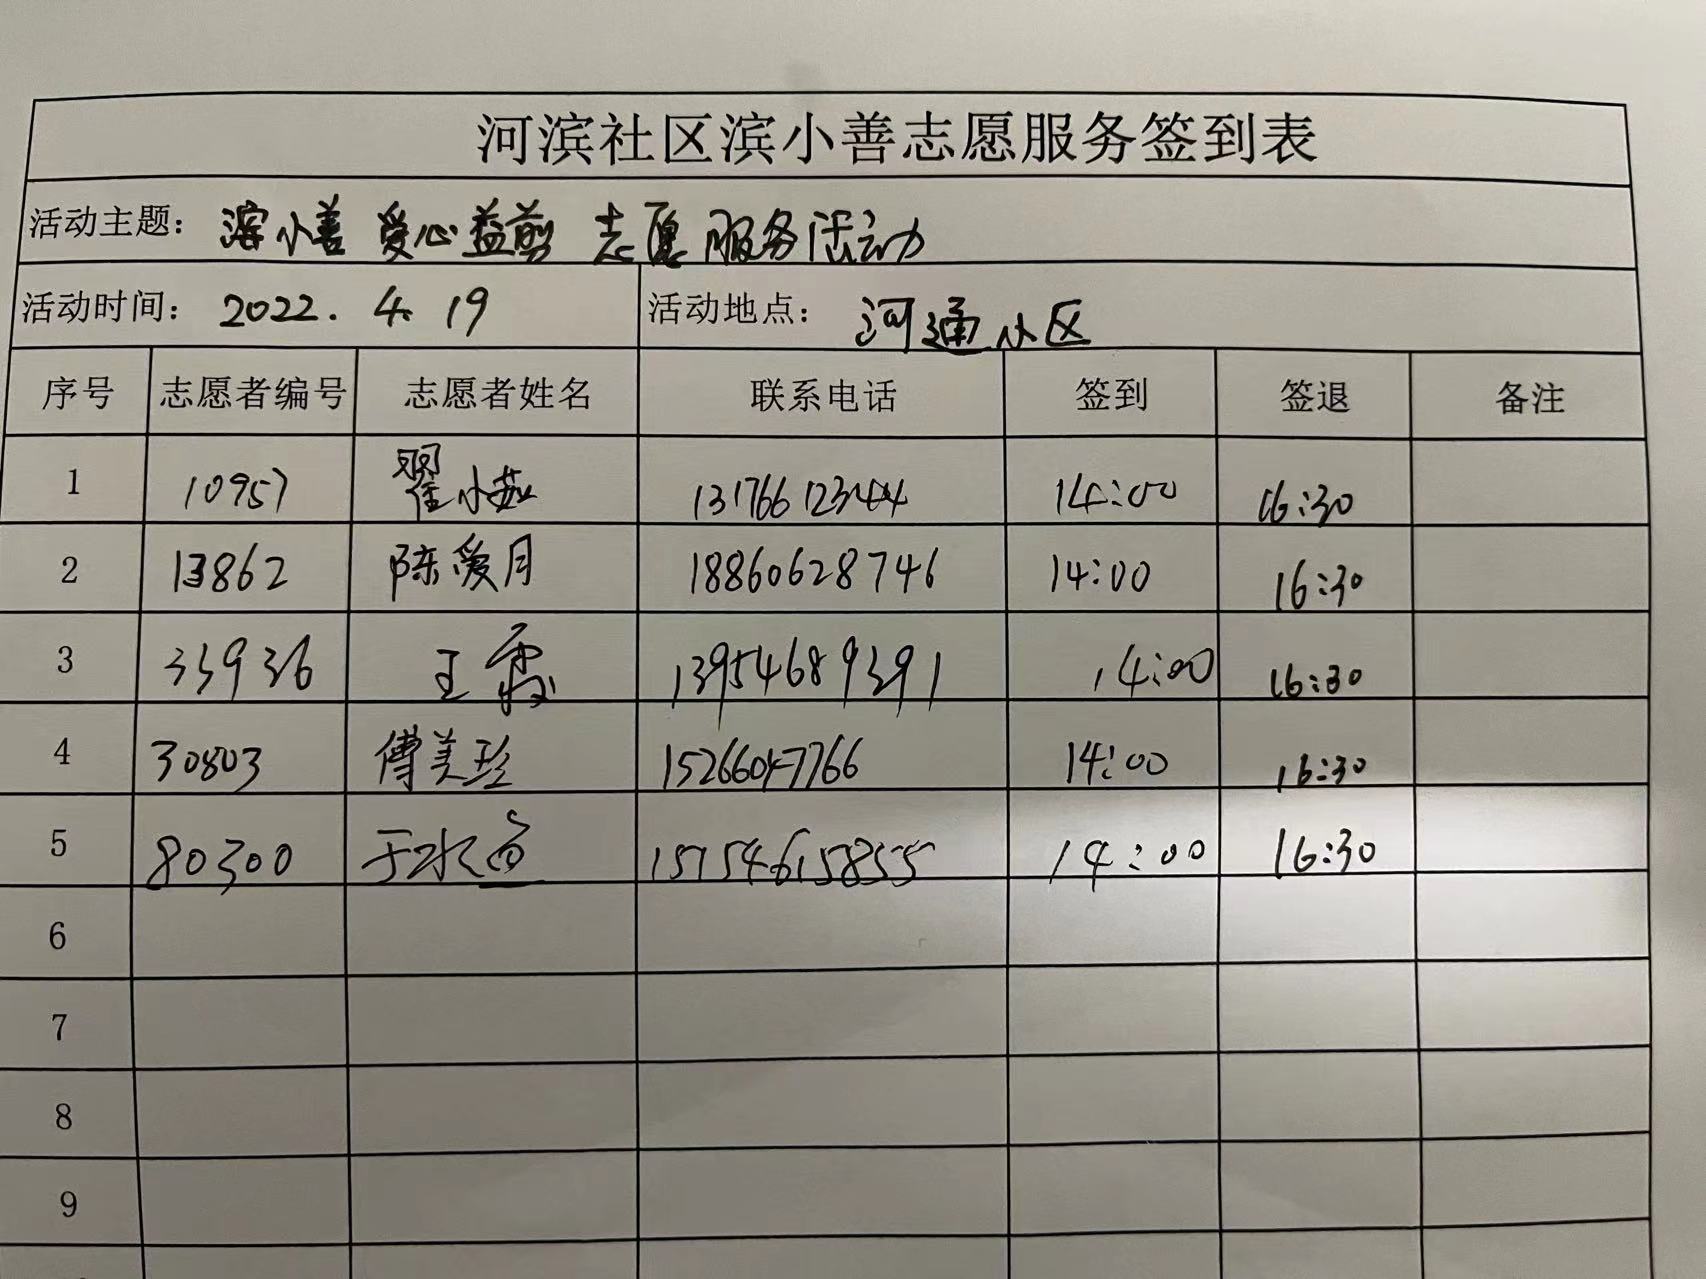 河滨社区滨小善志愿服务签到表
活动主题: 滨小善 爱心益剪 志愿服务活动
活动时间: 2022. 4. 19 活动地点: 河通小区
序号 志愿者编号 志愿者姓名 联系电话 签到 签退 备注
1 10957 翟小茹 13176612344 14:00 16:30
2 13862 陈爱月 18860628746 14:00 16:30
3 33936 王霞 13954689391 14:00 16:30
4 30803 傅美珍 15266047766 14:00 16:30
5 80300 于水 15154615855 14:00 16:30
6
7
8
9